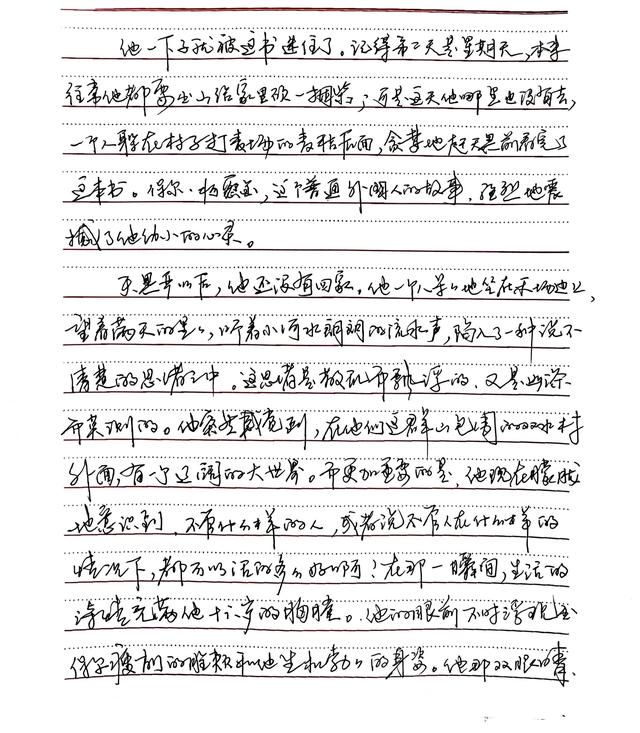 他一下子就被这书迷住了。记得第二天是星期天，本来
往常他都要出山给家里砍一捆柴；可是这天他哪里也没有去，
一个人躲在村子打麦场的麦秸后面，贪婪地赶天黑前看完了
这本书。保尔·柯察金，这个普通外国人的故事，强烈地震
撼了他幼小的心灵。
天黑严以后，他还没有回家。他一个人呆呆地坐在禾场边上，
望着满天的星星，听着小河水朗朗的流水声，陷入了一种说不
清楚的思绪之中。这思绪是散乱而飘浮的，又是幽深
而莫测的。他突然感觉到，在他们这群山包围的双水村
外面，有一个辽阔的大世界。而更加重要的是，他现在朦胧
地意识到，不管什么样的人，或者说不管人在什么样的
情况下，都可以活得多么好啊！在那一瞬间，生活的
诗情充满他十六岁的胸膛。他的眼前不时浮现出
保尔瘦削的脸颊和他生机勃勃的身姿。他那双眼睛